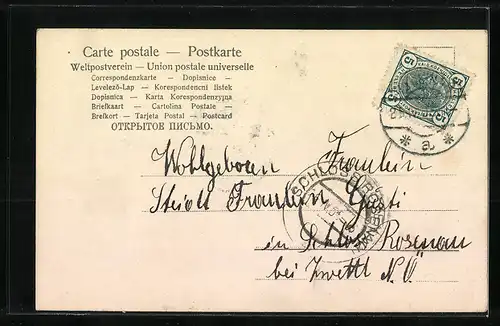 Carte postale — Postkarte
Weltpostverein — Union postale universelle
Correspondenzkarte — Dopisnice —
Levelező-Lap — Korespondenční lístek
Dopisnica — Karta Korespondenzyjna
Briefkaart — Cartolina Postale —
Brefkort — Tarjeta Postal — Postcard
ОТКРЫТОЕ ПИСЬМО.
5 5
* a *
Wohlgeboren Fraulein
Fraulein Gusti
SCHLOSS ROSENAU
in Schloß Rosenau
bei Zwettl N.Ö.